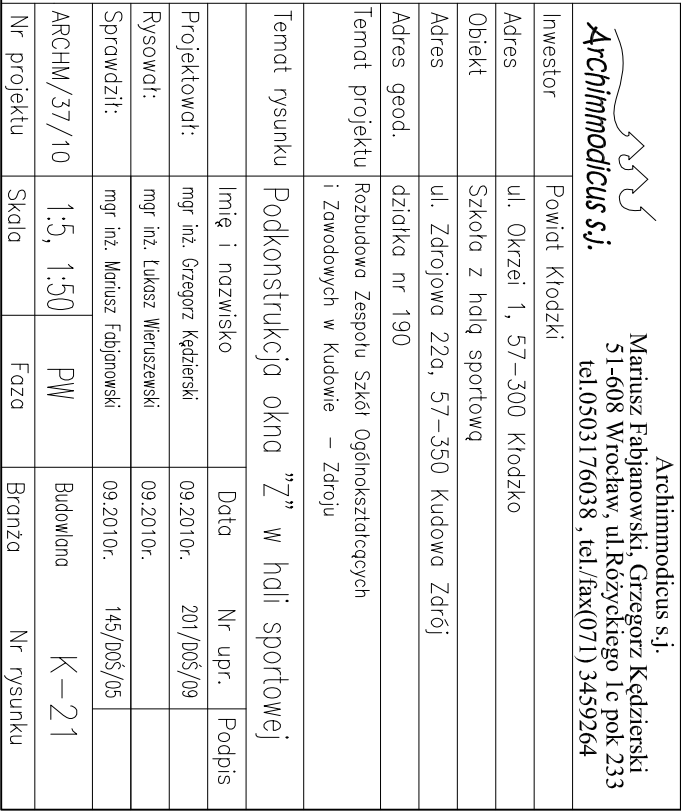 Archimmodicus s.j.
Archimmodicus s.j.
Mariusz Fabjanowski, Grzegorz Kędzierski
51-608 Wrocław, ul.Różyckiego 1c pok 233
tel.0503176038 , tel./fax(071) 3459264
Inwestor Powiat Kłodzki
Adres ul. Okrzei 1, 57-300 Kłodzko
Obiekt Szkoła z halą sportową
Adres ul. Zdrojowa 22a, 57-350 Kudowa Zdrój
Adres geod. działka nr 190
Temat projektu Rozbudowa Zespołu Szkół Ogólnokształcących
i Zawodowych w Kudowie - Zdroju
Temat rysunku Podkonstrukcja okna "Z" w hali sportowej
Imię i nazwisko Data Nr upr. Podpis
Projektował: mgr inż. Grzegorz Kędzierski 09.2010r. 201/DOŚ/09
Rysował: mgr inż. Łukasz Wieruszewski 09.2010r.
Sprawdził: mgr inż. Mariusz Fabjanowski 09.2010r. 145/DOŚ/05
ARCHM/37/10 1:5, 1:50 PW Budowlana K-21
Nr projektu Skala Faza Branża Nr rysunku